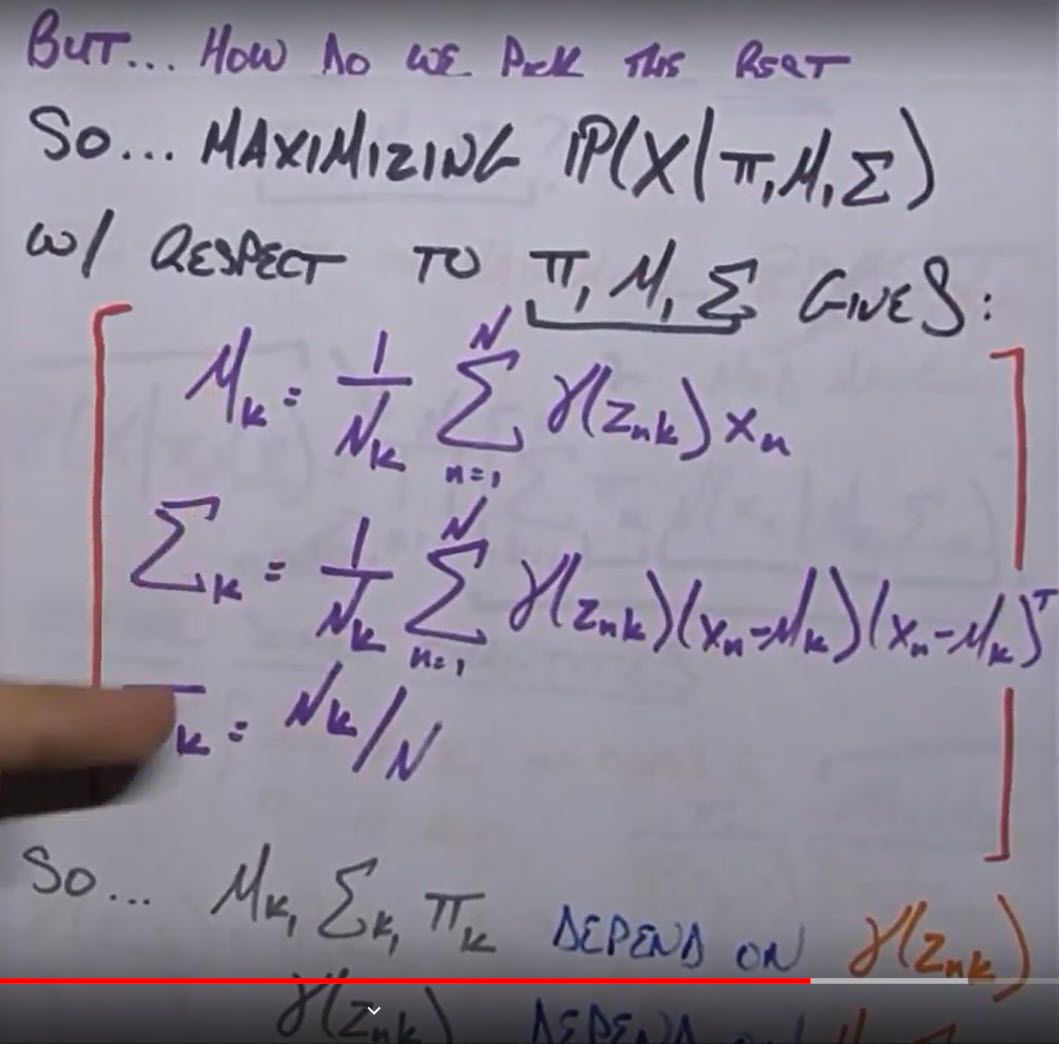 BUT... HOW DO WE PICK THIS BEST
SO... MAXIMIZING P(X|π,μ,Σ)
w/ RESPECT TO π, μ, Σ GIVES:
μk = 1/Nk Σ n=1 N γ(znk) xn
Σk = 1/Nk Σ n=1 N γ(znk)(xn-μk)(xn-μk)T
k = Nk/N
SO... μk, Σk, πk DEPEND ON γ(znk)
γ(znk) DEPEND ON